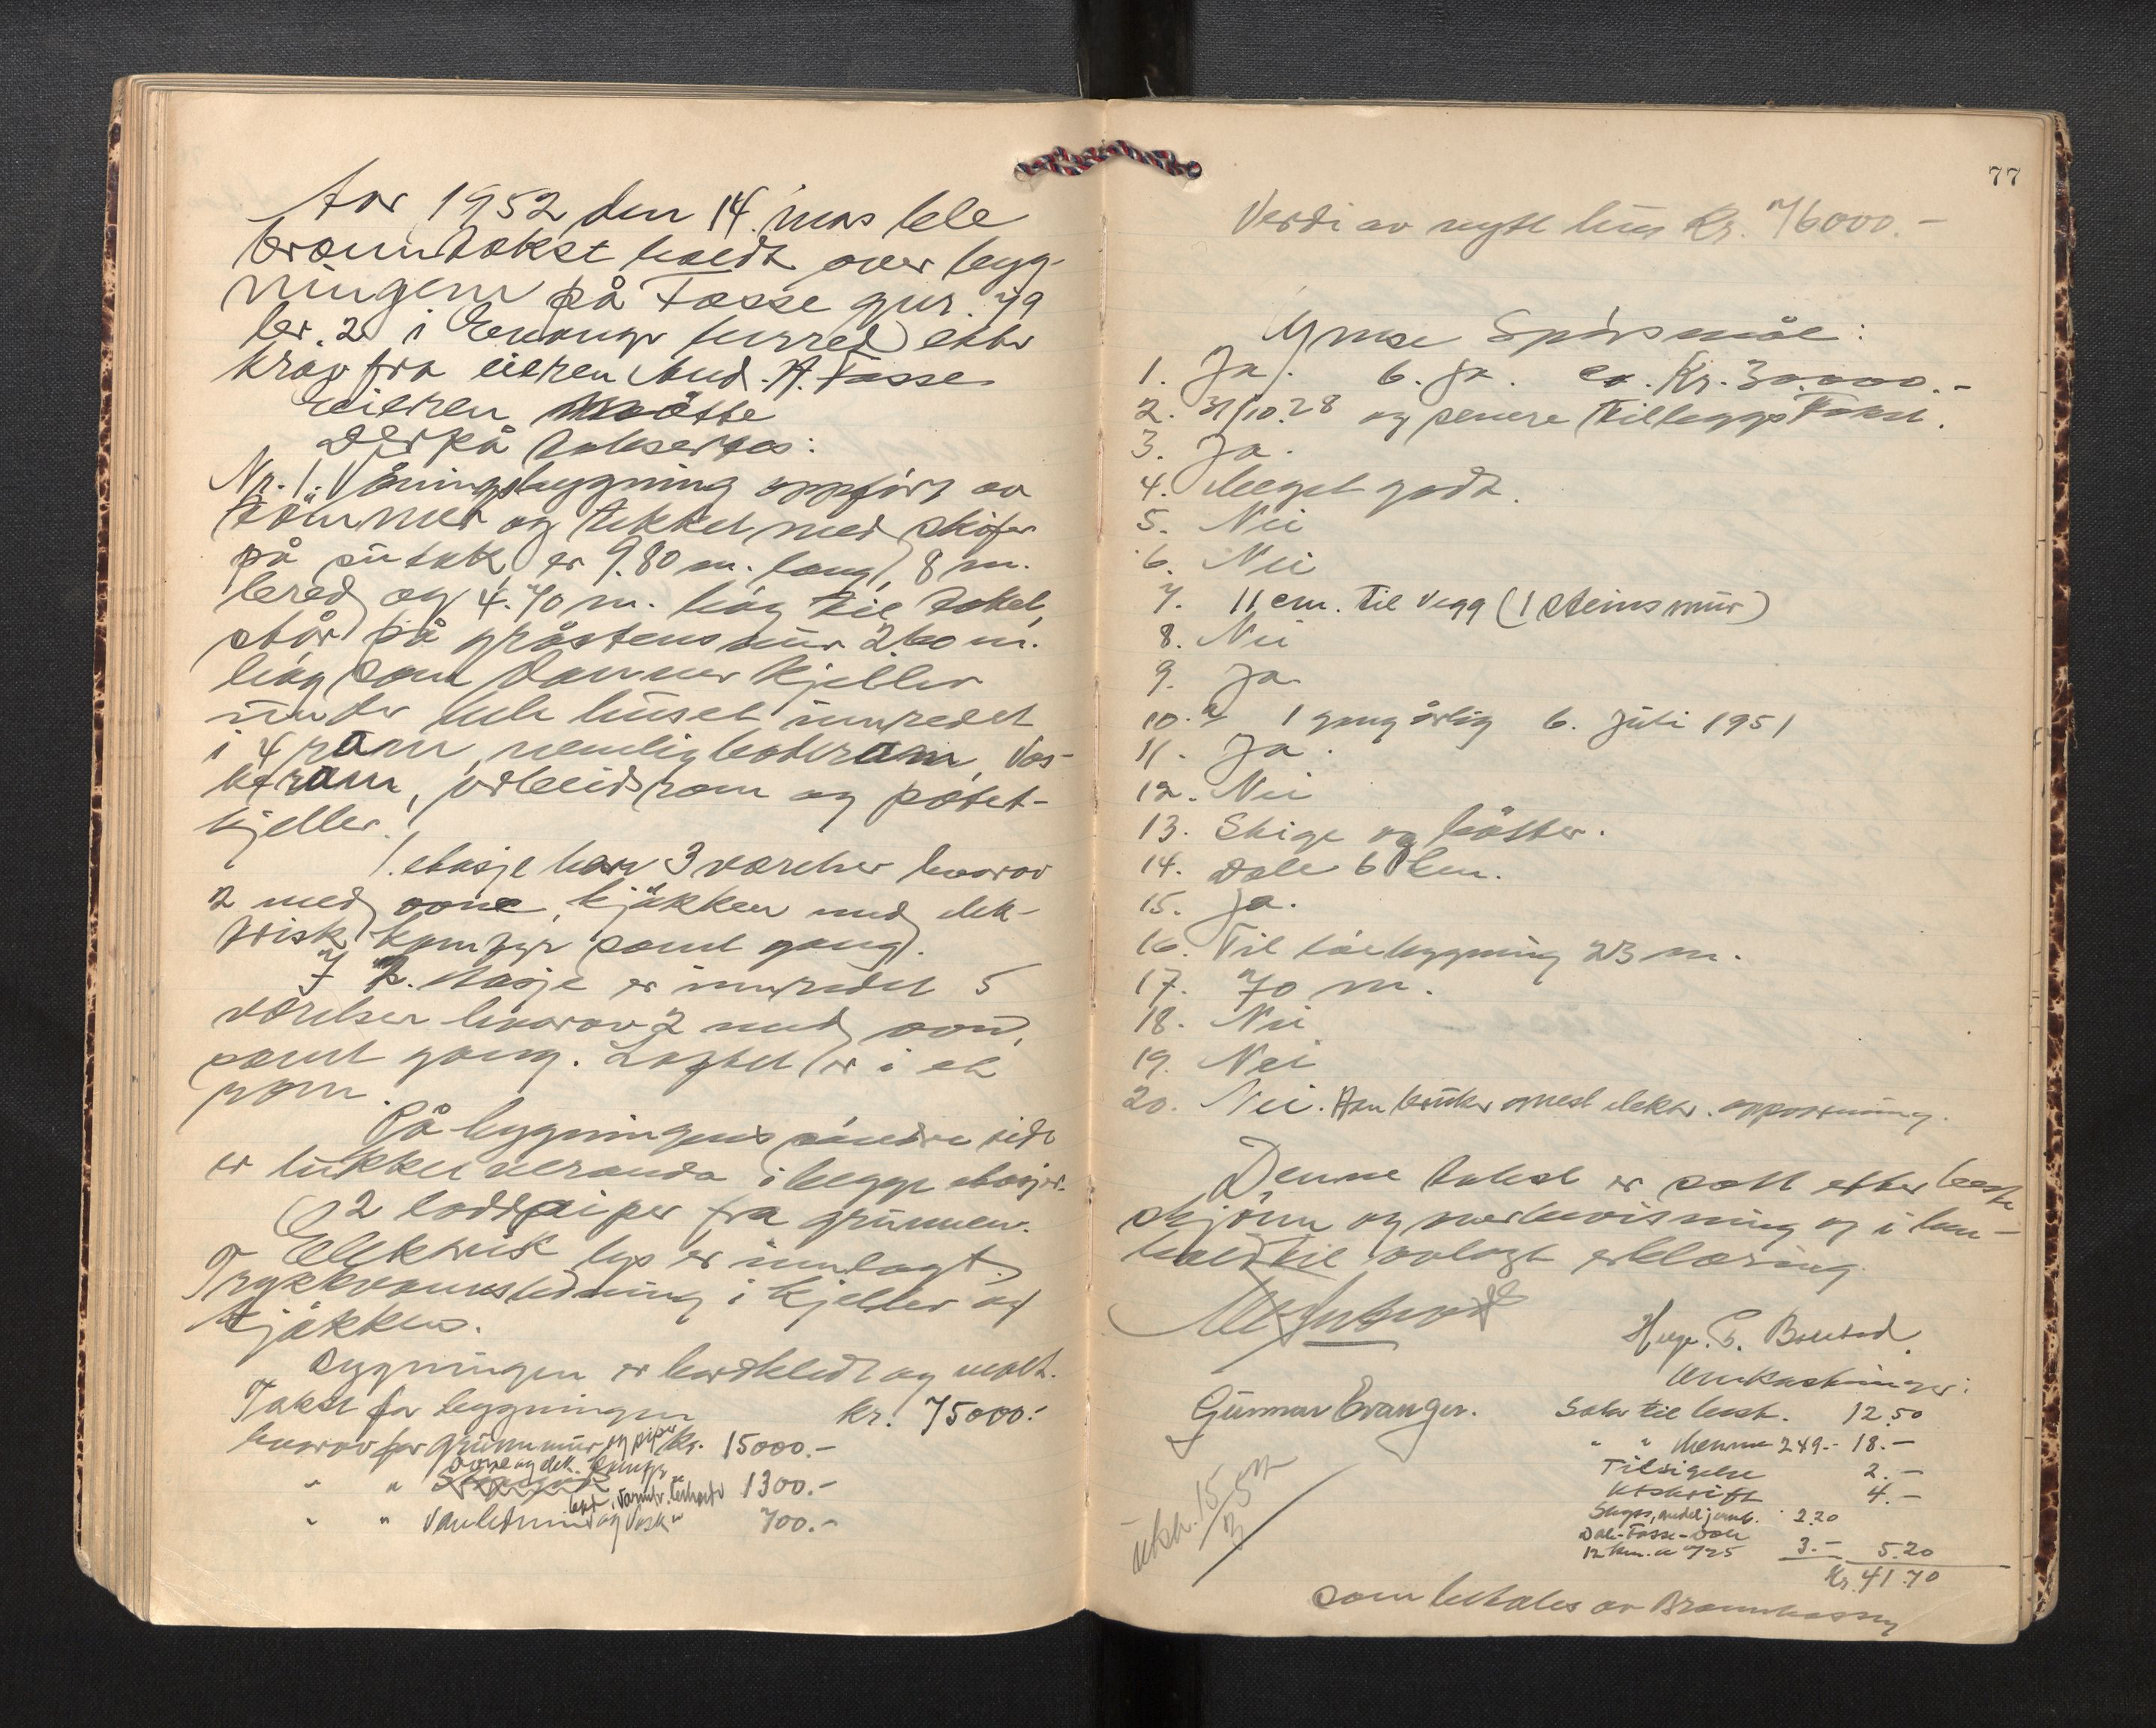 Aar 1952 den 14. mars ble
branntakst holdt over byg-
ningen på Fosse gnr. 79
br. 2 i Evanger herred etter
krav fra eieren And. A. Fosse
Eieren møtte
Derpå takseres:
Nr. 1. Våningsbygning oppført av
tömmer og tekket med skifer
på sutak er 9.80 m. lang, 8 m.
bred og 4.70 m. høg til taket,
står på gråstensmur 2.60 m.
høg som danner kjeller
under hele huset innredet
i 4 rom, nemlig baderom, vas-
kerom, arbeidsrom og potet-
kjeller.
1. etasje har 3 værelser hvorav
2 med ovne, kjøkken med elek-
trisk komfyr samt gang.
I 2. etasje er innredet 5
værelser hvorav 2 med ovn,
samt gang. Loftet er i et
rom.
På bygningens søndre side
er lukket veranda i begge etasjer.
2 loddpiper fra grunnen.
Elektrisk lys er innlagt.
Trykkvannsledning i kjeller og
kjøkken.
Bygningen er bordkledt og malt.
Takst for bygningen kr. 75000.-
hvorav for grunnmur og piper kr. 15000.-
ovne og elek. komfyr
" " 1300.-
" " Vanledning og vask 700.-
77
Verdi av nytt hus Kr. 76000.-
Ymse Spörsmål:
1. Ja. b. Ja. ca. Kr. 30.000.-
2. 31/10.28 og senere tilleggstakst.
3. Ja.
4. Meget godt.
5. Nei
6. Nei
7. 11 cm. til vegg (1 steins mur)
8. Nei
9. Ja
10. 1 gang årlig 6. juli 1951
11. Ja.
12. Nei
13. Stige og bøtter.
14. Dale 6 km.
15. Ja.
16. Til løebygning 23 m.
17. 70 m.
18. Nei
19. Nei
20. Nei. Han bruker mest elektr. oppvarming.
Denne takst er satt etter beste
skjønn og overbevisning og i hen-
hold til avlagt erklæring
Helge B. Bolstad.
Omkostninger:
Gunnar Evanger. Salær til best. 12.50
" " menn 249.- 18.-
Tilsigelse 2.-
Utskrift 4.-
Skyss, andel jernb. 2.20
Dale-Fosse-Dale
12 km. a 0/25 3.- 5.20
Kr. 41.70
utskr. 15/3 52
som betales av Brannkassen